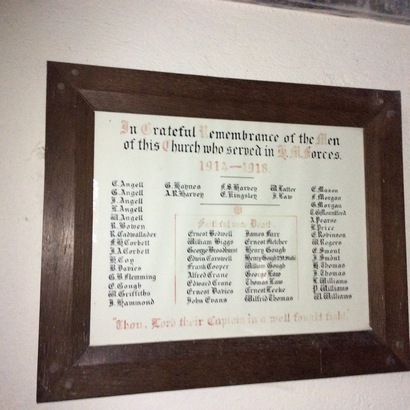 In Grateful Remembrance of the Men
of this Church who served in H.M. Forces.
1914—1918
C. Angell
G. Angell
J. Angell
L. Angell
W. Angell
R. Bowen
R. Cadwallader
F. H. Corbett
J. A. Corbett
H. Coy
B. Davies
G. B. Flemming
E. Gough
W. Griffiths
J. Hammond
G. Haynes
A. R. Harvey
F. S. Harvey
E. Kingsley
W. Latter
J. Law
C. Mason
F. Morgan
G. Morgan
A. Pearse
L. Price
E. Robinson
W. Rogers
E. Smout
J. Smout
H. Thomas
J. Thomas
L. Williams
P. Williams
W. Williams
Faithful unto Death
Ernest Bedwell
William Biggs
George Woodhurst
Edwin Carswell
Frank Cooper
Alfred Crane
Edward Crane
Ernest Davies
John Evans
James Farr
Ernest Fletcher
Henry Gough
Henry Gough
William Gough
George Law
Thomas Law
Ernest Leeke
Wilfrid Thomas
"Thou, Lord their Captain in a well fought fight."